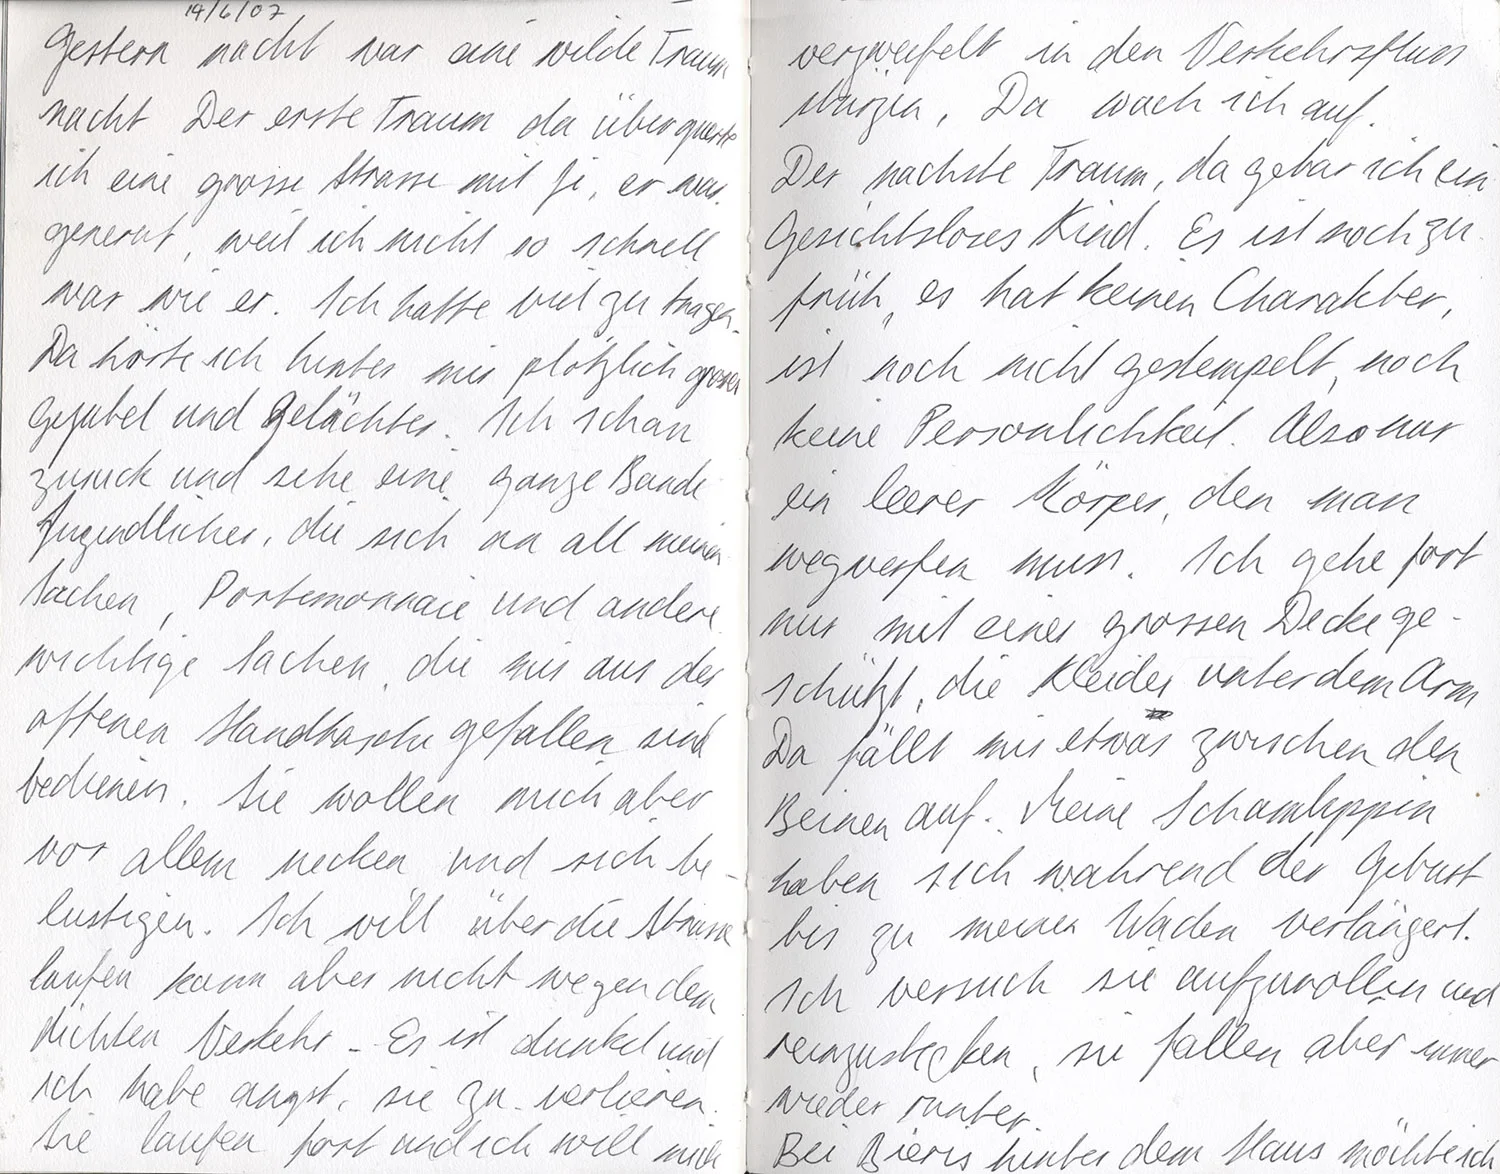 14/6/07
Gestern nacht war eine wilde Traum
nacht Der erste Traum da überquerte
ich eine grosse Strasse mit Ji, er war
genervt, weil ich nicht so schnell
war wie er. Ich hatte viel zu tragen.
Da hörte ich hinter mir plötzlich grosses
gejubel und Gelächter. Ich schau
zurück und sehe eine ganze Bande
Jugendlicher, die sich an all meinen
Sachen, Portemonnaie und andere
wichtige Sachen, die mir aus der
offenen Handtasche gefallen sind
bedienen. Sie wollen mich aber
vor allem necken und sich be-
lustigen. Ich will über die Strasse
laufen kann aber nicht wegen dem
dichten Verkehr - Es ist dunkel und
ich habe angst, sie zu verlieren.
Sie laufen fort und ich will mich
verzweifelt in den Verkehrsfluss
stürzen, Da wach ich auf.
Der nächste Traum, da gebar ich ein
Gesichtsloses Kind. Es ist noch zu
früh, es hat keinen Charakter,
ist noch nicht gestempelt, noch
keine Persönlichkeit. Also nur
ein leerer Körper, den man
wegwerfen muss. Ich gehe fort
nur mit einer grossen Decke ge-
schützt, die Kleider unter dem Arm
Da fällt mir etwas zwischen den
Beinen auf. Meine Schamlippen
haben sich während der Geburt
bis zu meinen Waden verlängert.
Ich versuch sie aufzurollen und
reinzustecken, sie fallen aber immer
wieder runter.
Bei Bieris hinter dem Haus möchte ich